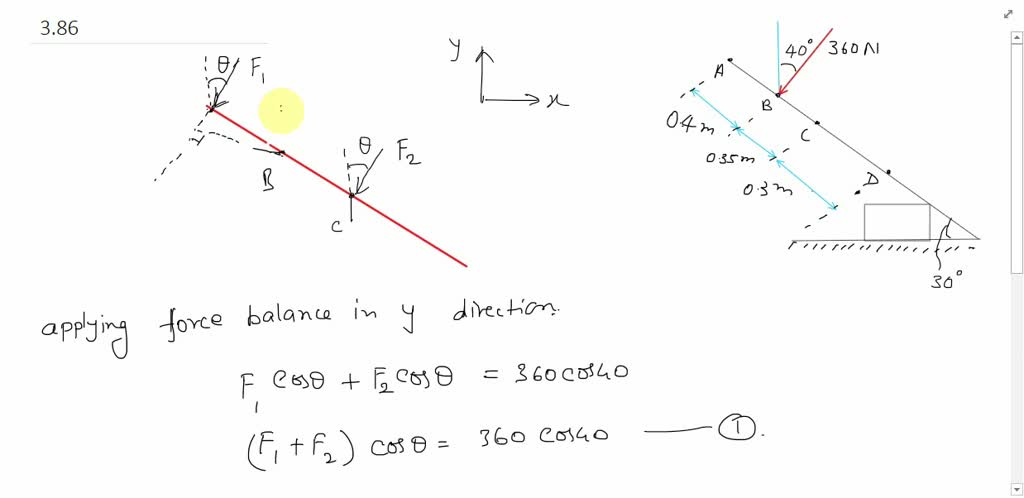 3.86
θ F1
y
x
40° 360N
A
B
C
D
0.4m
0.35m
0.3m
30°
B
θ F2
C
applying force balance in y direction.
F1 cosθ + F2 cosθ = 360 cos40
(F1 + F2) cosθ = 360 cos40 —— ①.